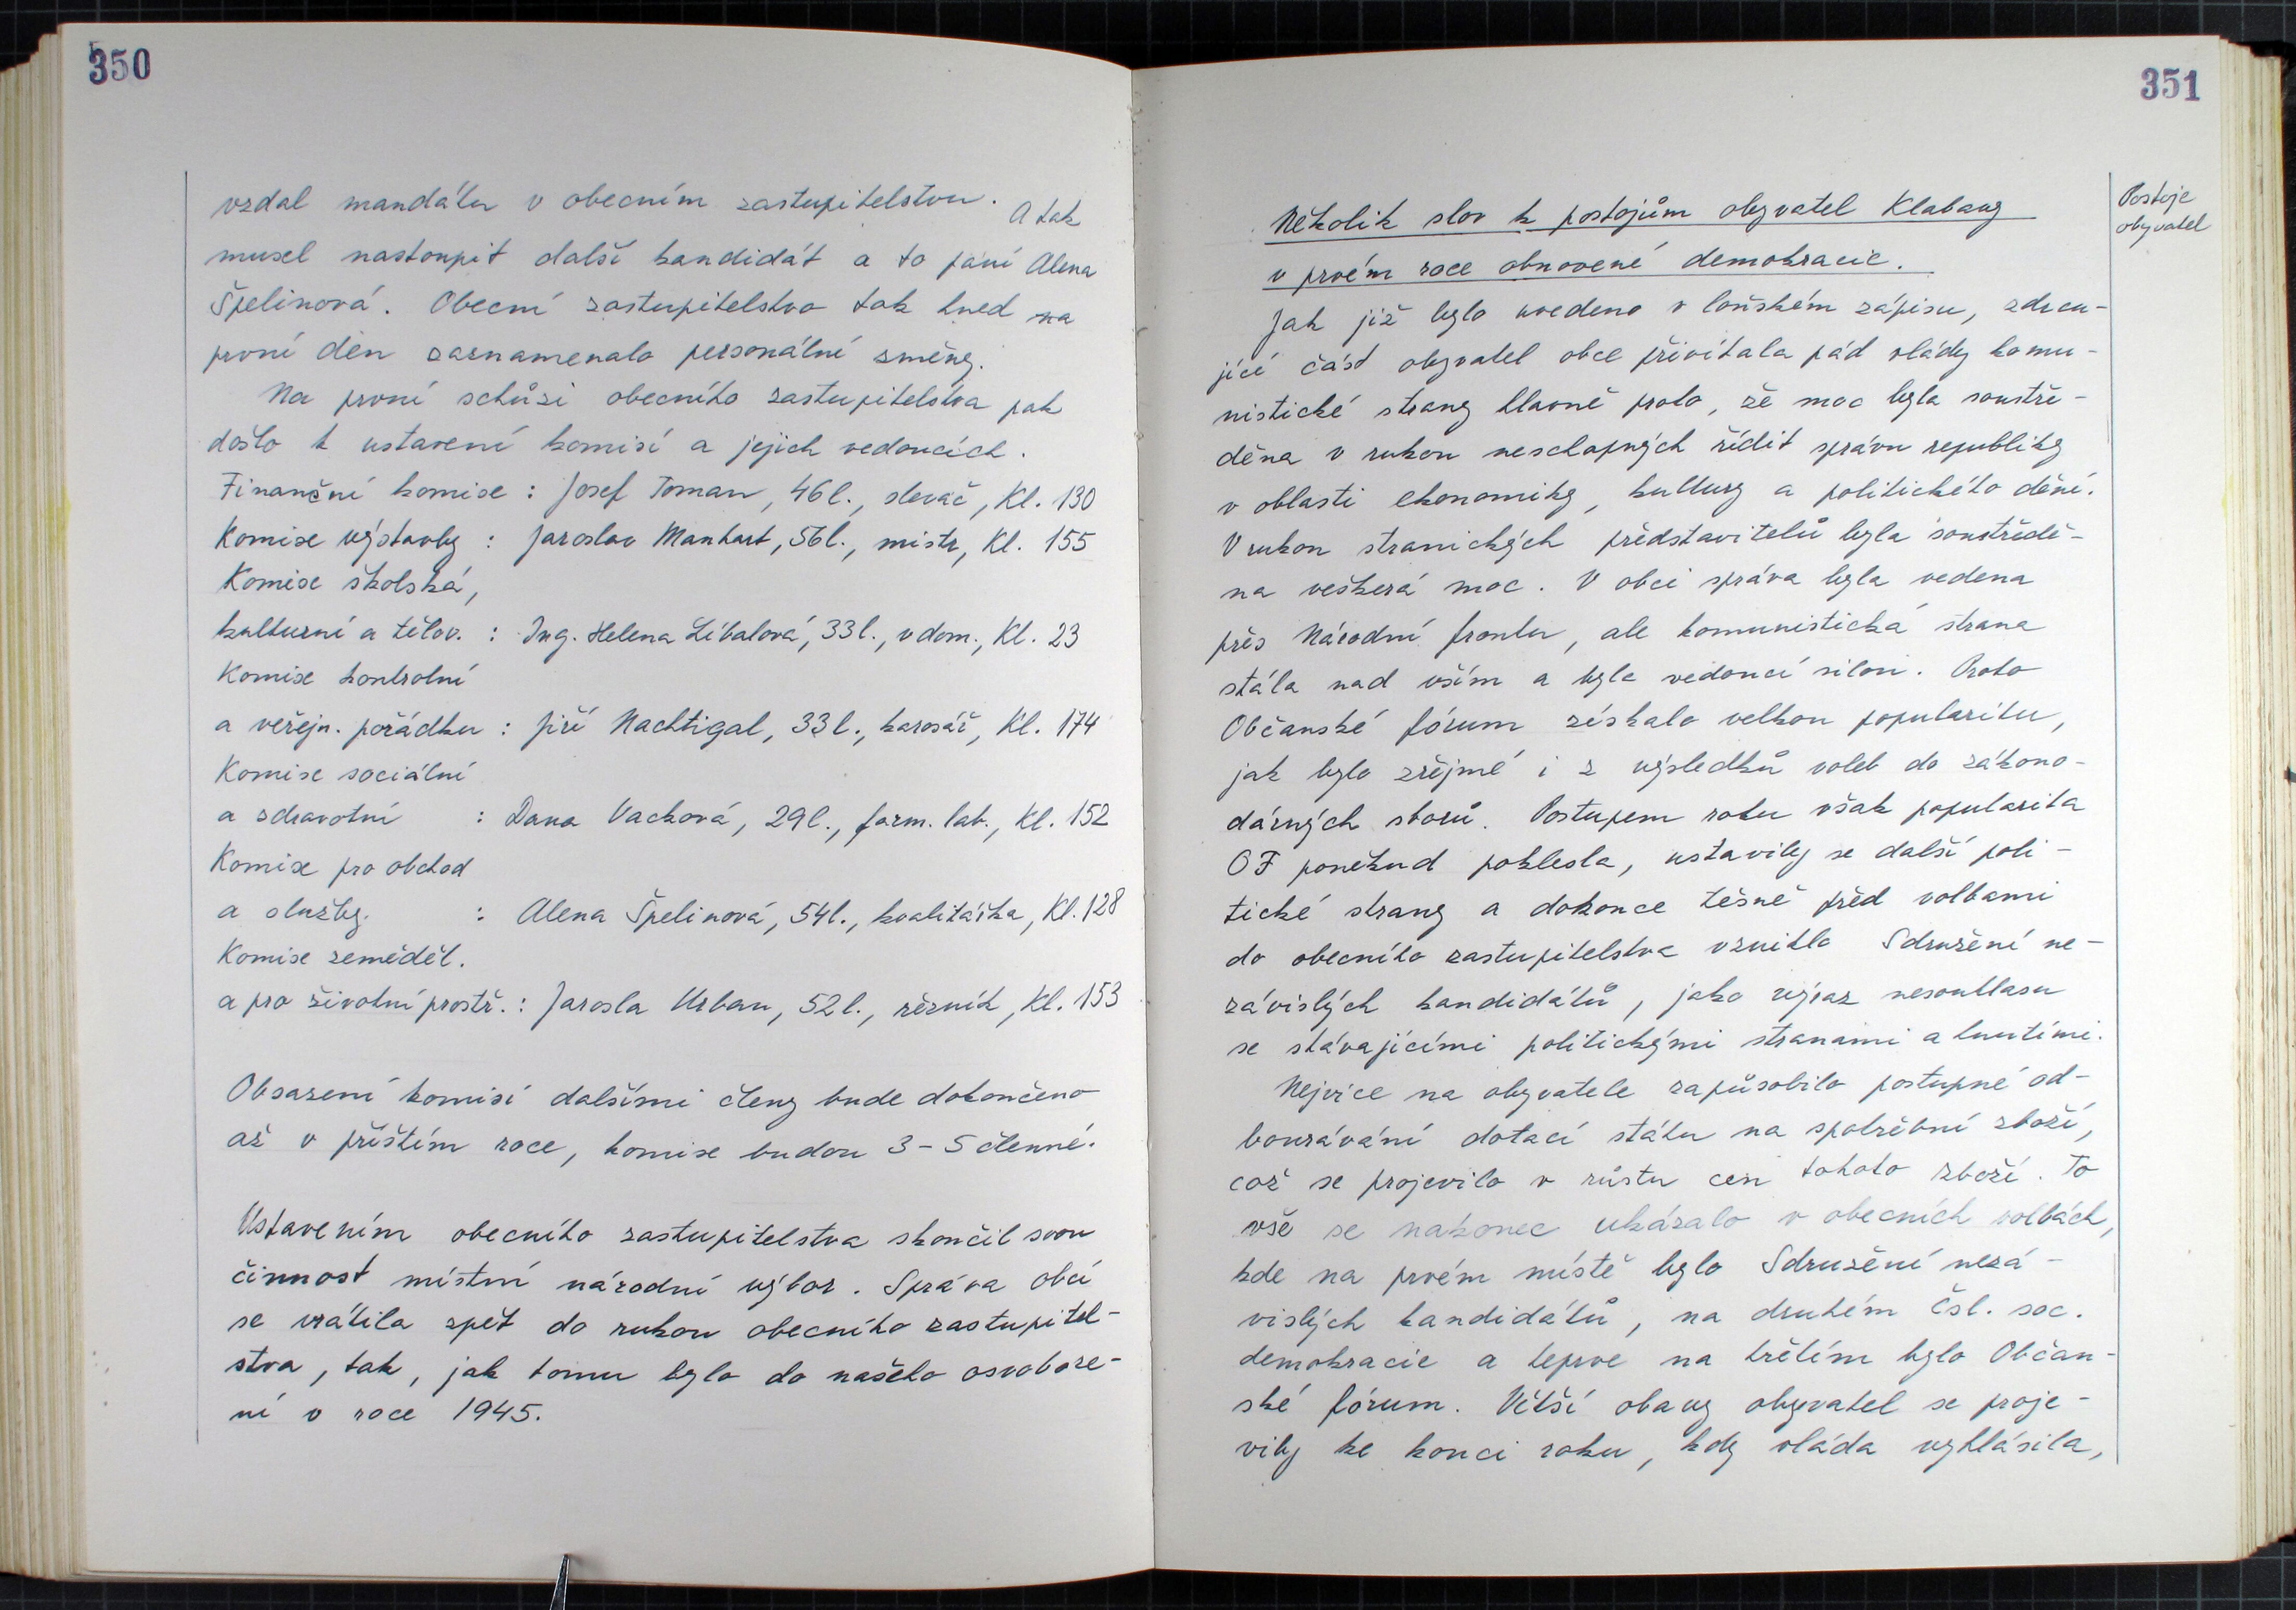 350
vzdal mandátu v obecním zastupitelstvu. A tak
musel nastoupit další kandidát a to paní Alena
Špelinová. Obecní zastupitelstvo tak hned na
první den zaznamenalo personální změny.
Na první schůzi obecního zastupitelstva pak
došlo k ustavení komisí a jejich vedoucích.
Finanční komise : Josef Toman, 46 l., slevač, Kl. 130
Komise výstavby : Jaroslav Manhart, 56 l., mistr, Kl. 155
Komise školská,
kulturní a tělov. : Ing. Helena Líbalová, 33 l., v dom., Kl. 23
Komise kontrolní
a veřejn. pořádku : Jiří Nachtigal, 33 l., karosář, Kl. 174
Komise sociální
a zdravotní : Dana Vacková, 29 l., farm. lab., Kl. 152
Komise pro obchod
a služby. : Alena Špelinová, 54 l., kvalitářka, Kl. 128
Komise zeměděl.
a pro životní prostř. : Jarosla Urban, 52 l., řezník, Kl. 153
Obsazení komisí dalšími členy bude dokončeno
až v příštím roce, komise budou 3-5 členné.
Ustavením obecního zastupitelstva skončil svou
činnost místní národní výbor. Správa obcí
se vrátila zpět do rukou obecního zastupitel-
stva, tak, jak tomu bylo do našeho osvoboze-
ní v roce 1945.
351
Postoje
obyvatel
Několik slov k postojům obyvatel Klabavy
v prvém roce obnovené demokracie.
Jak již bylo uvedeno v loňském zápisu, zdrcu-
jící část obyvatel obce přivítala pád vlády komu-
nistické strany hlavně proto, že moc byla soustře-
děna v rukou neschopných řídit správu republiky
v oblasti ekonomiky, kultury a politického dění.
V rukou stranických představitelů byla soustředě-
na veškerá moc. V obci správa byla vedena
přes Národní frontu, ale komunistická strana
stála nad vším a byla vedoucí silou. Proto
Občanské fórum získalo velkou popularitu,
jak bylo zřejmé i z výsledků voleb do zákono-
dárných sborů. Postupem roku však popularita
OF poněkud poklesla, ustavily se další poli-
tické strany a dokonce těsně před volbami
do obecního zastupitelstva vzniklo Sdružení ne-
závislých kandidátů, jako výraz nesouhlasu
se stávajícími politickými stranami a hnutími.
Nejvíce na obyvatele zapůsobilo postupné od-
bourávání dotací státu na spotřební zboží,
což se projevilo v růstu cen tohoto zboží. To
vše se nakonec ukázalo v obecních volbách,
kde na prvém místě bylo Sdružení nezá-
vislých kandidátů, na druhém Čsl. soc.
demokracie a teprve na třetím bylo Občan-
ské fórum. Větší obavy obyvatel se proje-
vily ke konci roku, kdy vláda vyhlásila,